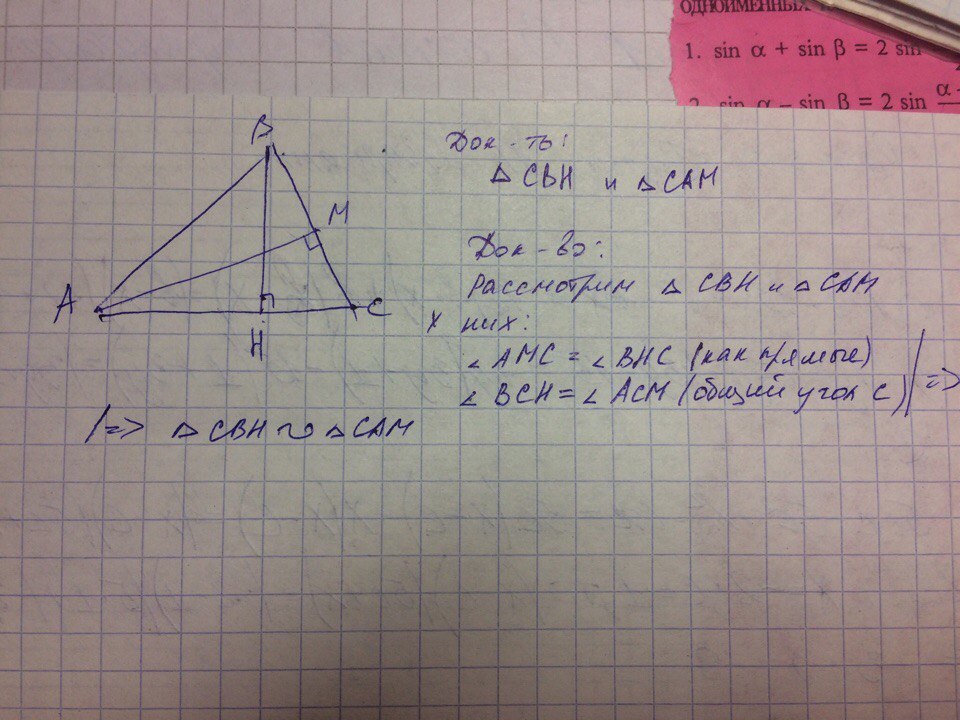 ОДНОИМЕННЫХ
1. sin α + sin β = 2 sin
2. sin α – sin β = 2 sin α –
B
M
A
C
H
Док-ть:
△ CBH и △ CAM
Док-во:
Рассмотрим △ CBH и △ CAM
У них:
∠ AMC = ∠ BHC (как прямые)
∠ BCH = ∠ ACM (общий угол C) | =>
|=> △ CBH ~ △ CAM